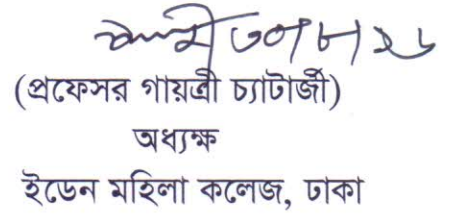 ৩০/৮/২৬
(প্রফেসর গায়ত্রী চ্যাটার্জী)
অধ্যক্ষ
ইডেন মহিলা কলেজ, ঢাকা